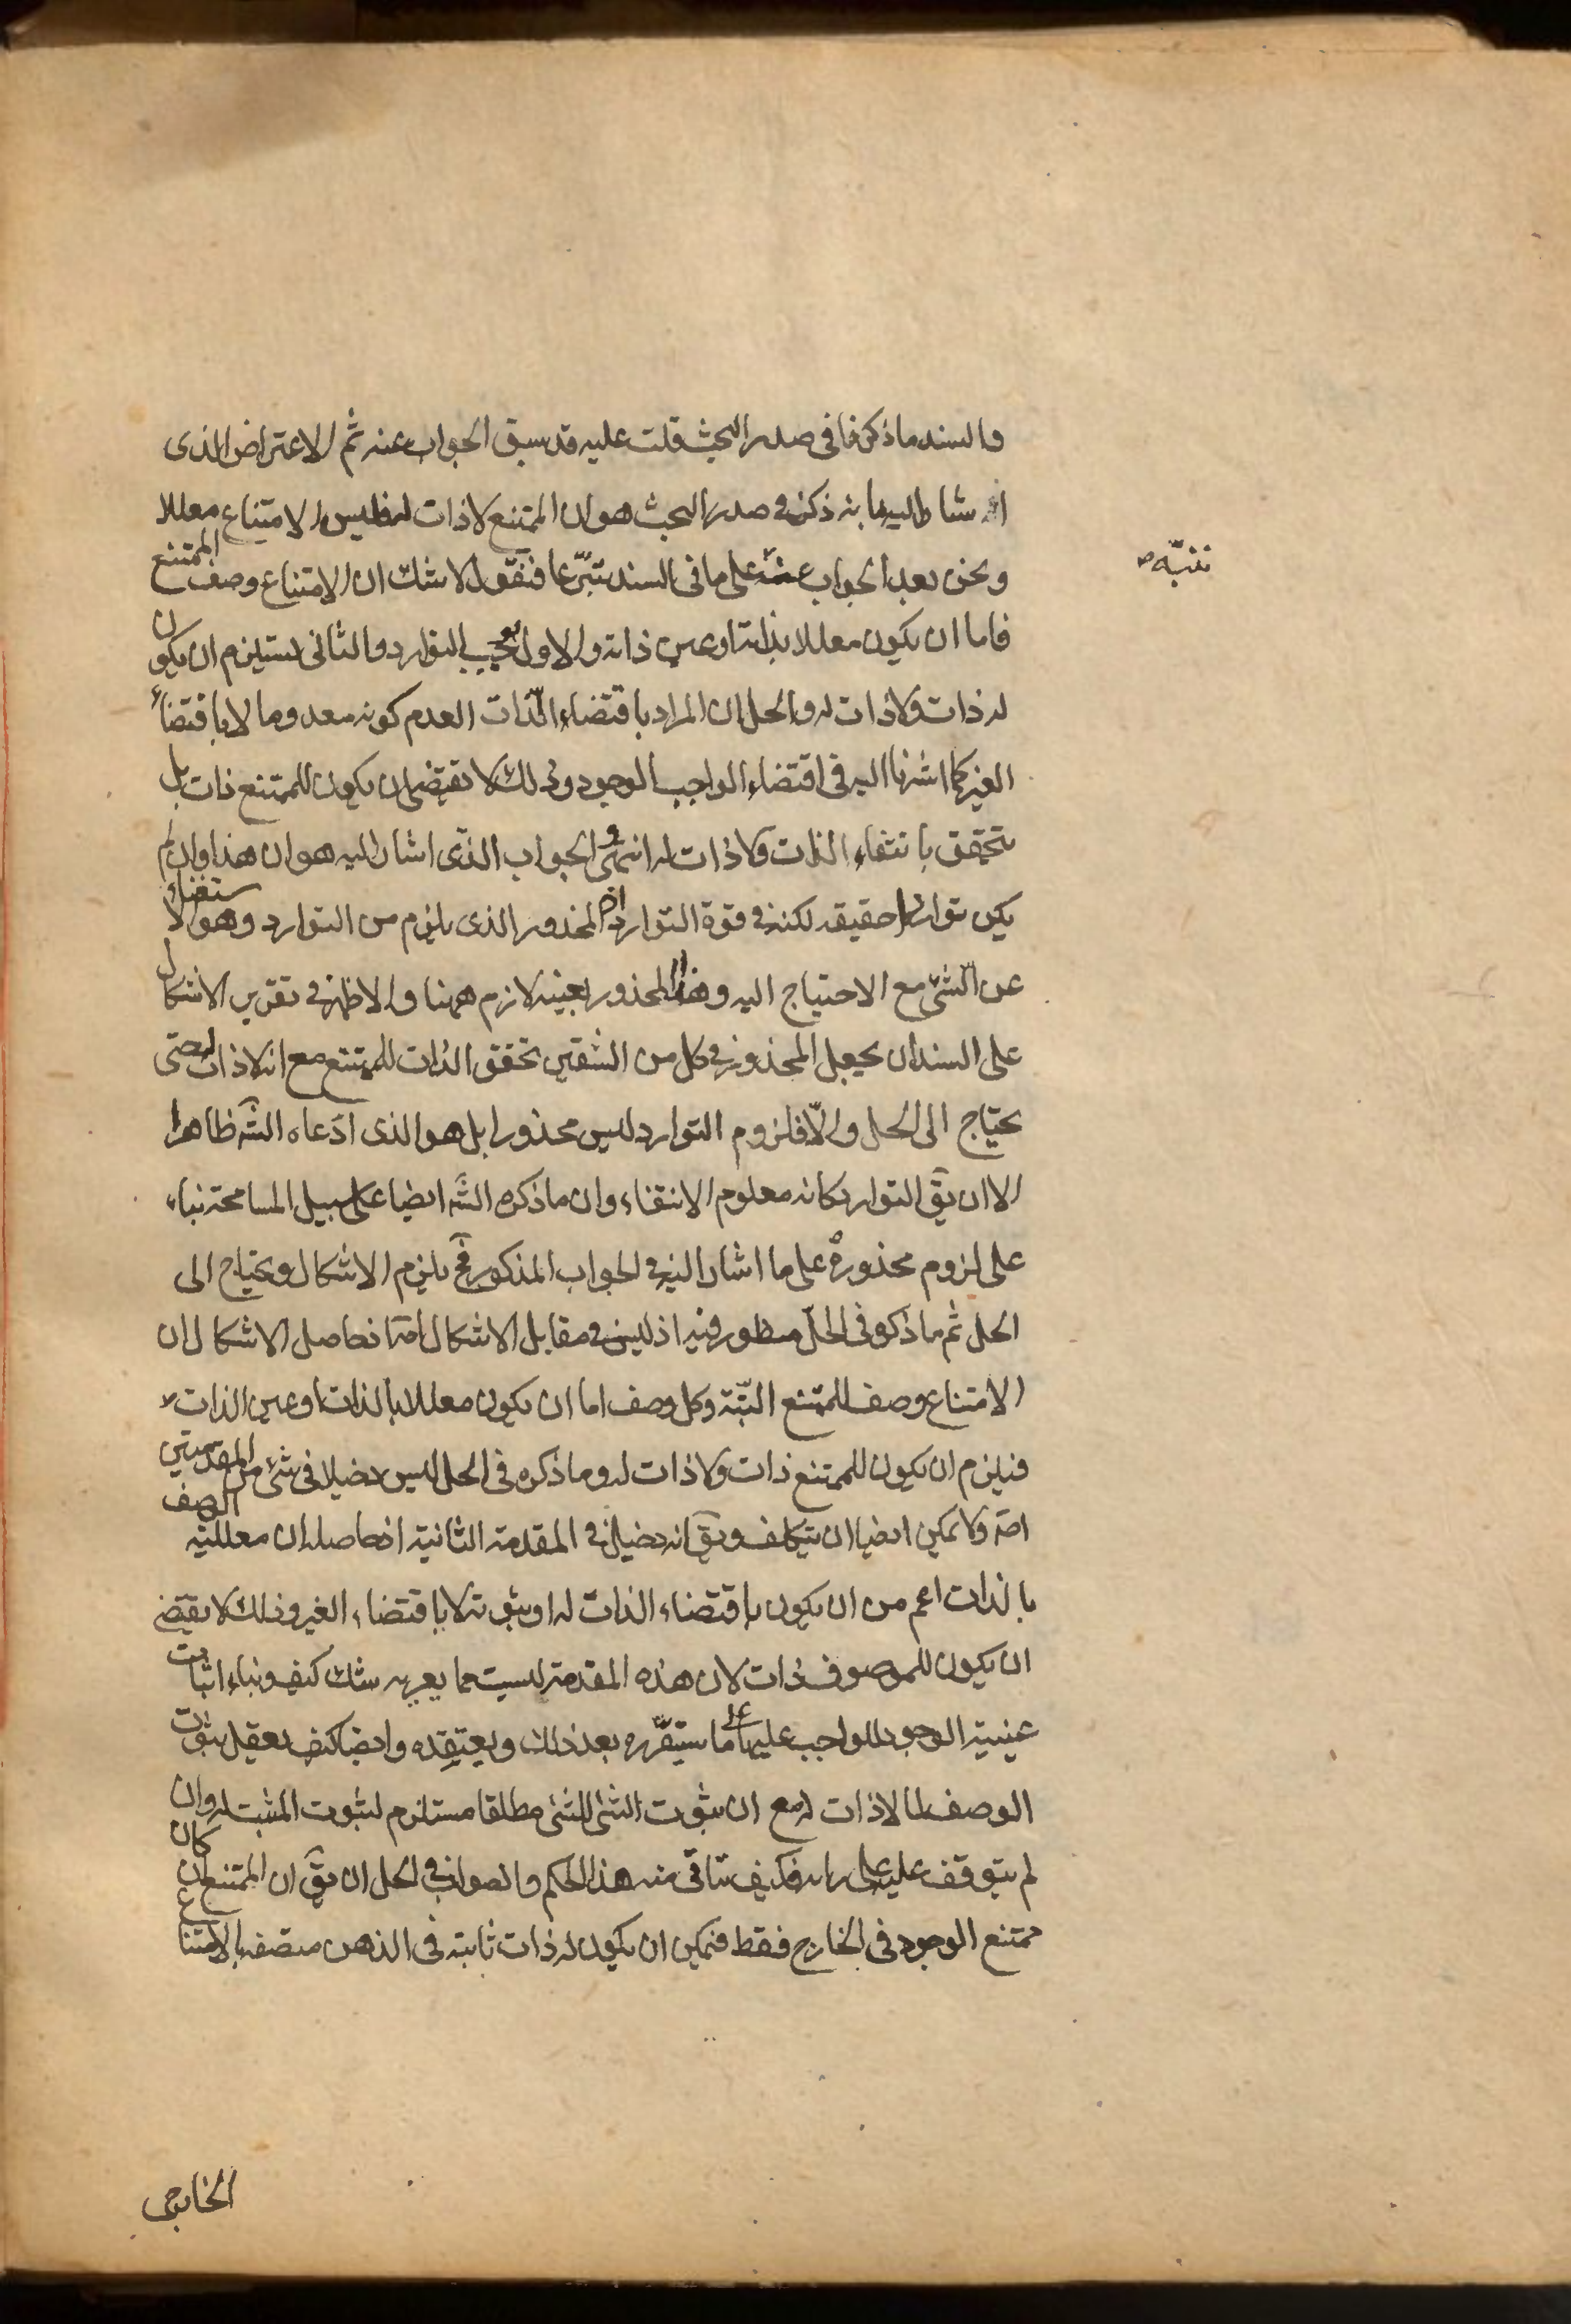 والسند ما ذكرنا فى صدر البحث قلت عليه قد سبق الجواب عنه ثم الاعتراض الذى
اشار اليه بانه ذكر فى صدر البحث هو ان الممتنع لا ذات له فليس الامتناع معللا
ونحن بعد الجواب عنه على ما فى السند تبرعا فنقول لا شك ان الامتناع وصف الممتنع
فاما ان يكون معللا بذاته او عين ذاته والاول يوجب التوارد والثانى يستلزم ان يكون
له ذات ولا ذات له والحل ان المراد باقتضاء الذات العدم كونه معدوما لا باقتضاء
الغير كما اشرنا اليه فى اقتضاء الواجب الوجود وذلك لا يقتضى ان يكون للممتنع ذات بل
يتحقق بانتفاء الذات ولا ذات له انتهى و الجواب الذى اشار اليه هو ان هذا وان لم
يكن تواردا حقيقة لكنه فى قوة التوارد اذ المحذور الذى يلزم من التوارد وهو الاستغناء
عن الشئ مع الاحتياج اليه وهذا المحذور بعينه لازم ههنا والاظهر فى تقرير الاشكال
على السند ان يجعل المحذور فى كل من الشقين تحقق الذات للممتنع مع انه لا ذات له حتى
يحتاج الى الحل والّا فلزوم التوارد ليس محذورا بل هو الذى ادعاه الشه ظاهرا
الا ان يق التوارد كانه معلوم الانتفاء وان ما ذكره الشه ايضا على سبيل المسامحة بناء
على لزوم محذوره على ما اشار اليه فى الجواب المذكور فح يلزم الاشكال ويحتاج الى
الحل ثم ما ذكره فى الحل منظور فيه اذ ليس فى مقابل الاشكال اصه اذ حاصل الاشكال ان
الامتناع وصف للممتنع البتة وكل وصف اما ان يكون معللا بالذات او عين الذات
فيلزم ان يكون للممتنع ذات ولا ذات له وما ذكره فى الحل ليس دخيلا فى شئ من المقدمتين
اصه ولا يمكن ايضا ان يتكلف ويق انه دخيل فى المقدمة الثانية اذ حاصله ان معللية الوصف
بالذات اعم من ان يكون باقتضاء الذات له او ثبوته لا باقتضاء الغير وذلك لا يقتضى
ان يكون للموصوف ذات لان هذه المقدمة ليست مما يعريه شك كيف وبناء اثبات
عينية الوجود للواجب عليها على ما سيقرره بعد ذلك ويعتقده وايضا كيف يعقل ثبوت
الوصف لما لا ذات له مع ان ثبوت الشئ للشئ مطلقا مستلزم لثبوت المثبت له وان
لم يتوقف عليه على رايه فكيف يتاتى منه هذا الحكم والصواب فى الحل ان يق ان الممتنع ان كان
ممتنع الوجود فى الخارج فقط فيمكن ان يكون له ذات ثابتة فى الذهن متصفة بالامتناع
الخارجى